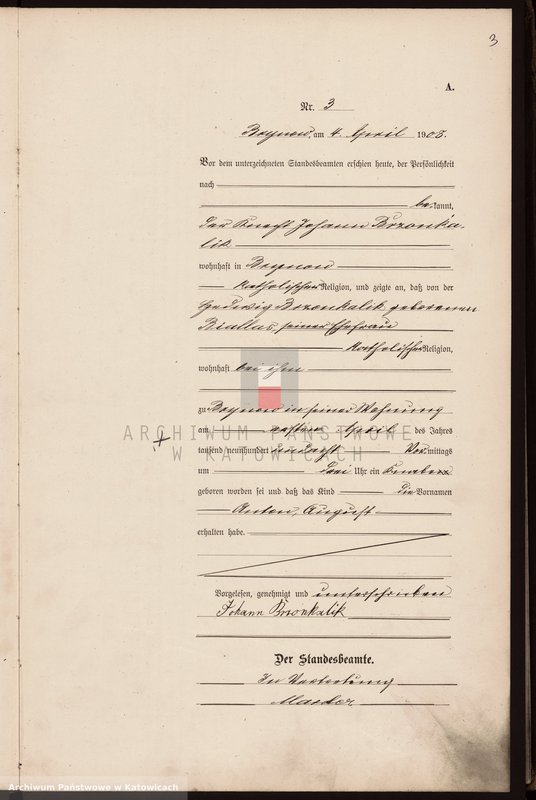 3
A.
Nr. 3
Brynow, am 4. April 1908.
Vor dem unterzeichneten Standesbeamten erschien heute, der Persönlichkeit
nach
bekannt,
der Knecht Johann Brzonka-
lik
wohnhaft in Brynow
katholischer Religion, und zeigte an, daß von der
Hedwig Brzonkalik geborenen
Biallas, seiner Ehefrau
katholischer Religion,
wohnhaft bei ihm
zu Brynow in seiner Wohnung
am ersten April des Jahres
tausend neunhundert und acht Vormittags
um drei Uhr ein Knabe
geboren worden sei und daß das Kind die Vornamen
Anton, August
erhalten habe.
Vorgelesen, genehmigt und unterschrieben
Johann Brzonkalik
Der Standesbeamte.
In Vertretung
ARCHIWUM PAŃSTWOWE
W KATOWICACH
Archiwum Państwowe w Katowicach